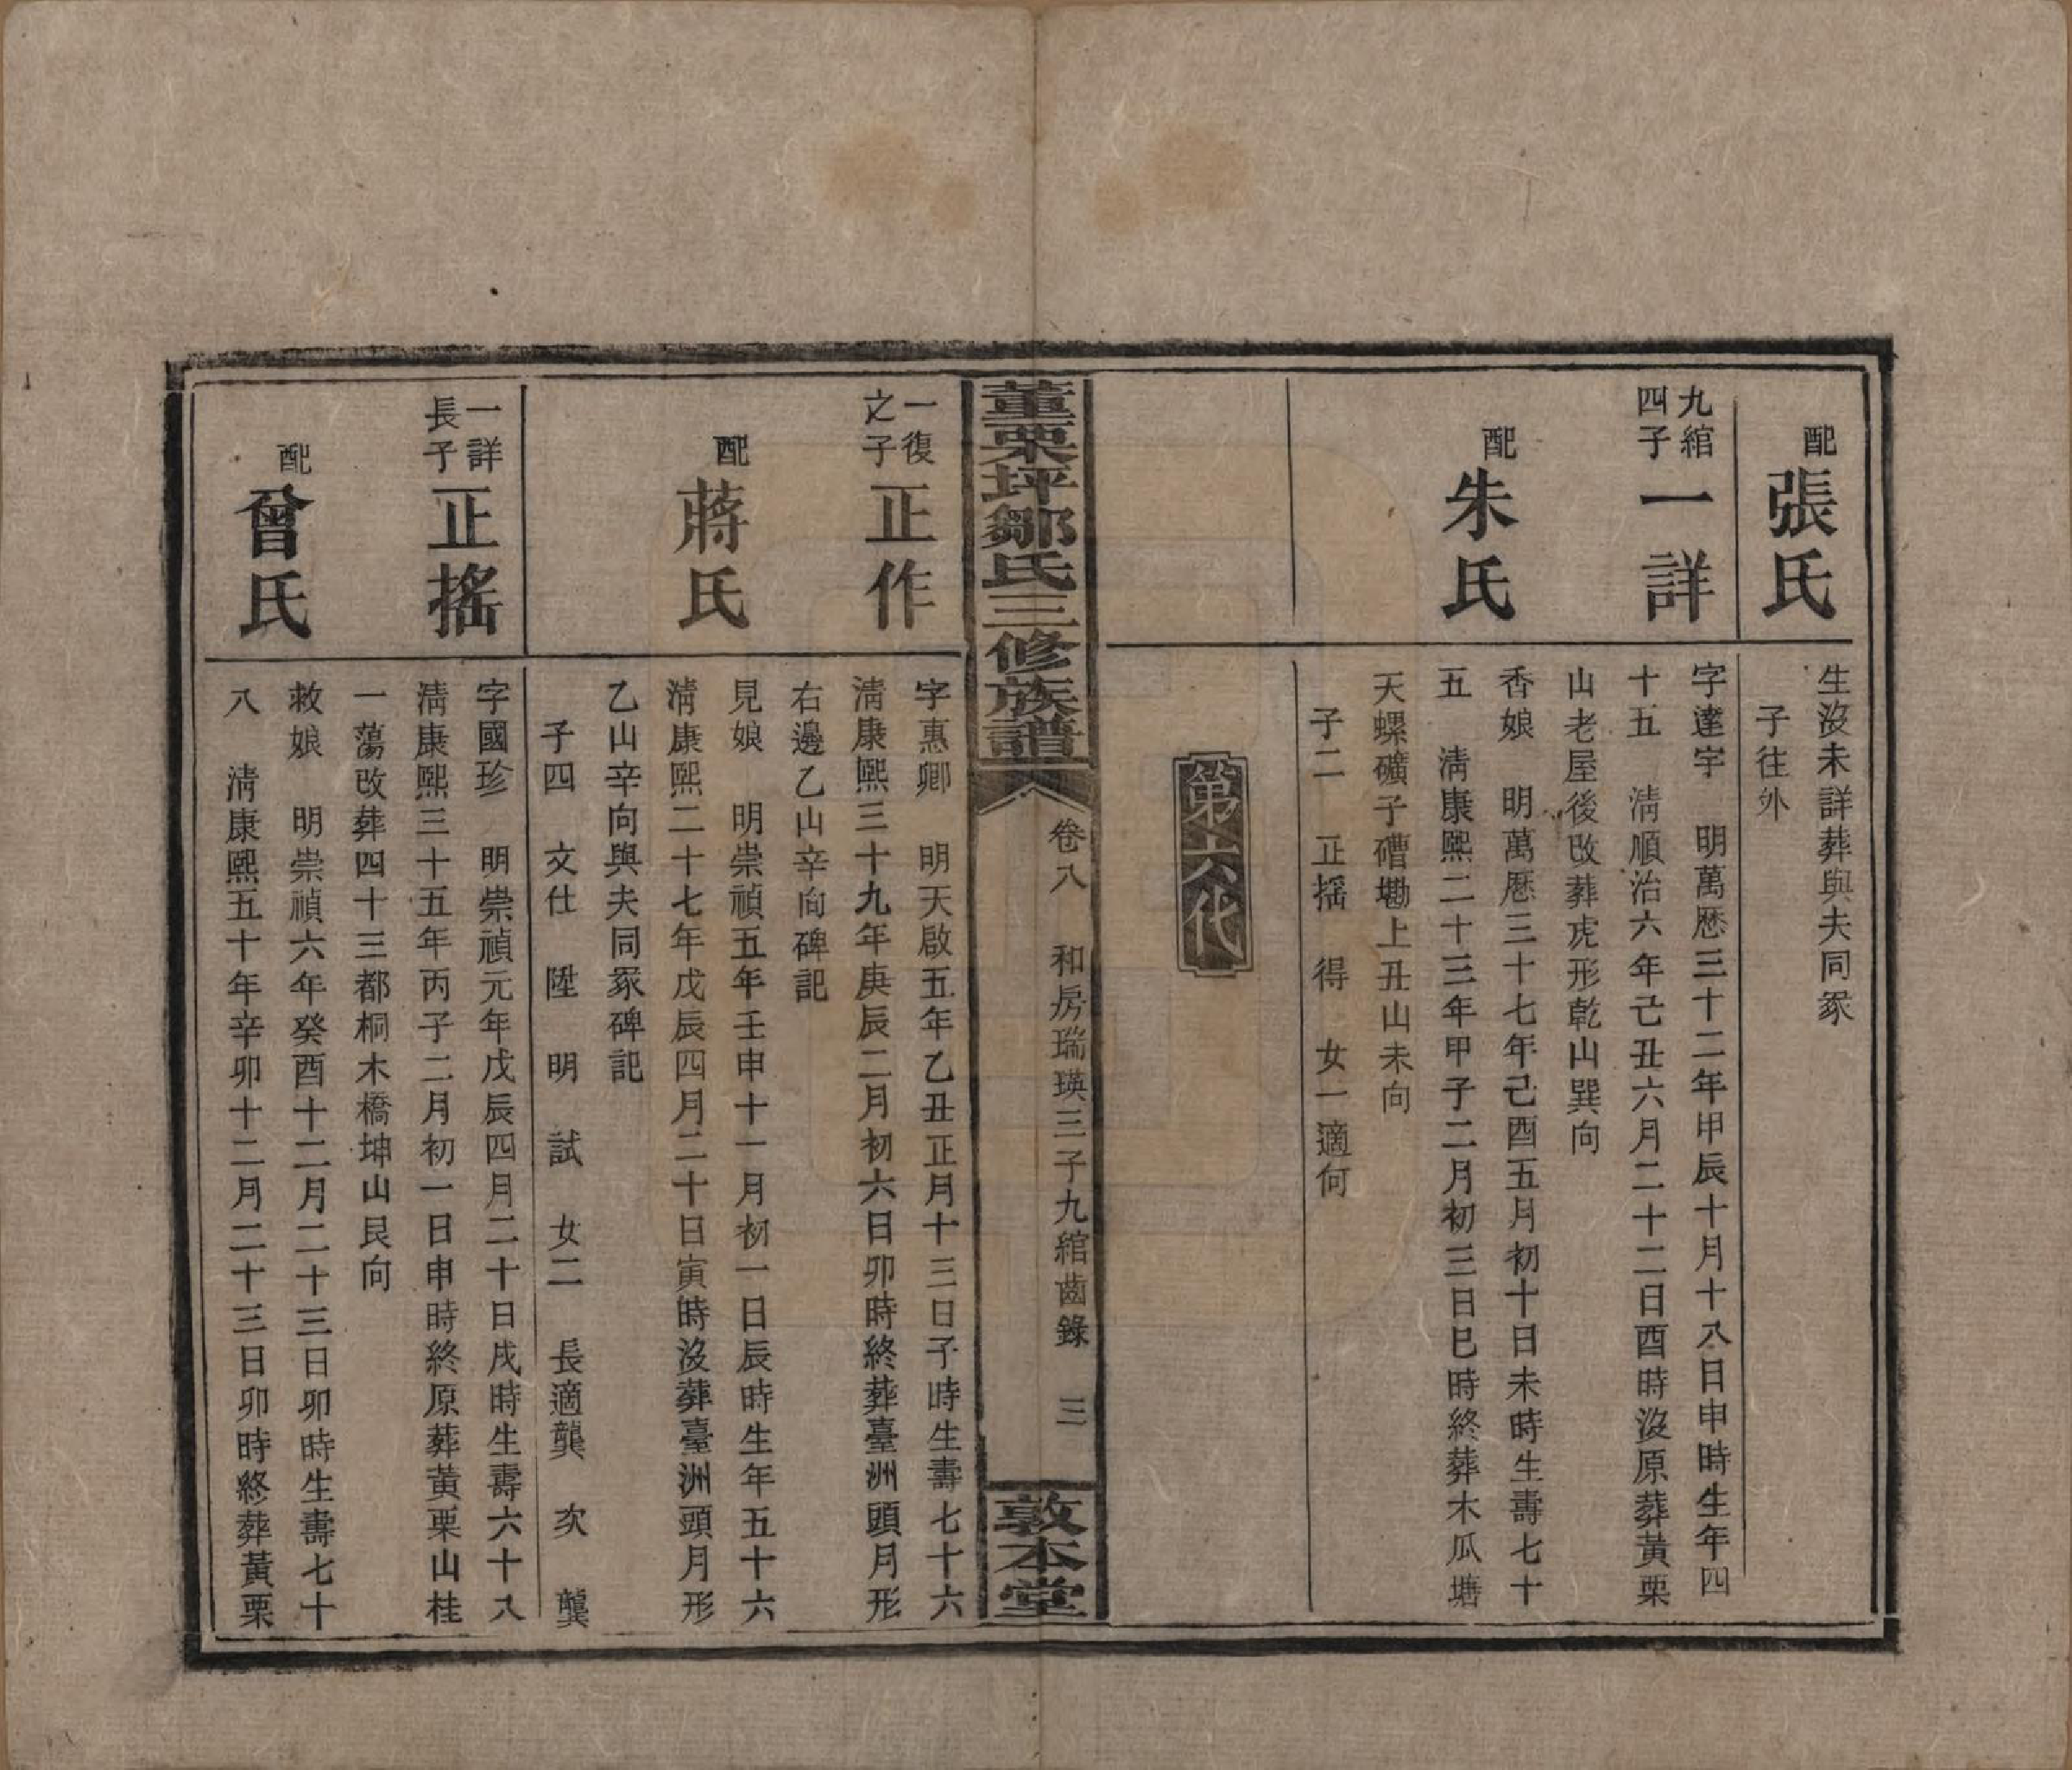 配
張氏
生沒未詳葬與夫同冢
子往外
九綰
四子
一詳
字達宇 明萬歷三十二年甲辰十月十八日申時生年四
十五 淸順治六年己丑六月二十二日酉時沒原葬黃栗
山老屋後改葬虎形乾山巽向
配
朱氏
香娘 明萬歷三十七年己酉五月初十日未時生壽七十
五 淸康熙二十三年甲子二月初三日巳時終葬木瓜塘
天螺礦子磳墈上丑山未向
子二 正搖 得 女一適何
第六代
董栗坪鄒氏三修族譜
卷八 和房瑞瑛三子九綰齒錄 三
敦本堂
一復
之子
正作
字惠卿 明天啟五年乙丑正月十三日子時生壽七十六
淸康熙三十九年庚辰二月初六日卯時終葬臺洲頭月形
右邊乙山辛向碑記
配
蔣氏
見娘 明崇禎五年壬申十一月初一日辰時生年五十六
淸康熙二十七年戊辰四月二十日寅時沒葬臺洲頭月形
乙山辛向與夫同冢碑記
子四 文仕 陞 明 試 女二 長適龔 次 龔
一詳
長子
正搖
字國珍 明崇禎元年戊辰四月二十日戌時生壽六十八
淸康熙三十五年丙子二月初一日申時終原葬黃栗山桂
一蕩改葬四十三都桐木橋坤山艮向
配
曾氏
敕娘 明崇禎六年癸酉十二月二十三日卯時生壽七十
八 淸康熙五十年辛卯十二月二十三日卯時終葬黃栗